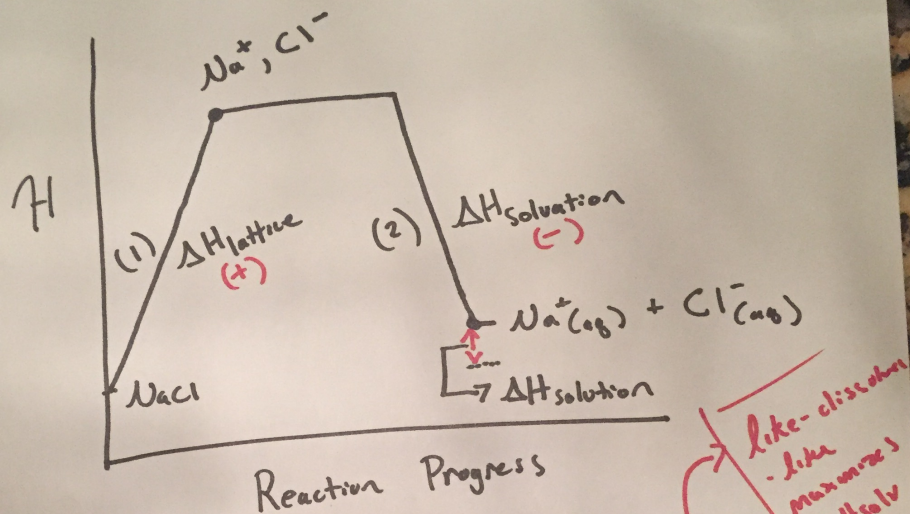 Na⁺, Cl⁻
H
(1)
ΔHlattice
(+)
(2)
ΔHsolvation
(-)
Na⁺(aq) + Cl⁻(aq)
NaCl
ΔHsolution
Reaction Progress
like-dissolves
- like
maximizes